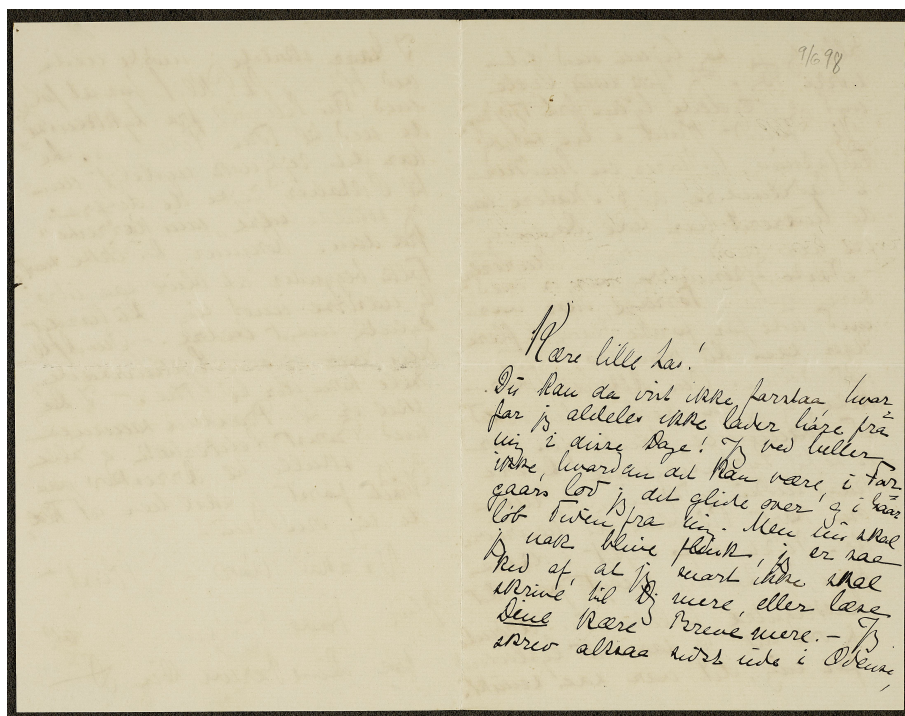 9/6 98
Kære lille Las!
Du kan da vist ikke forstaa hvor=
for jeg aldeles ikke lader høre fra
mig i disse Dage! Jeg ved heller
ikke, hvordan det kan være, i For=
gaars lod jeg det glide over og i Gaar
løb Tiden fra mig. Men nu skal
jeg nok blive flink, jeg er saa
ked af, at jeg snart ikke skal
skrive til Dig mere, eller læse
Dine kære Breve mere. – Jeg
skrev altsaa sidst ude i Odense,